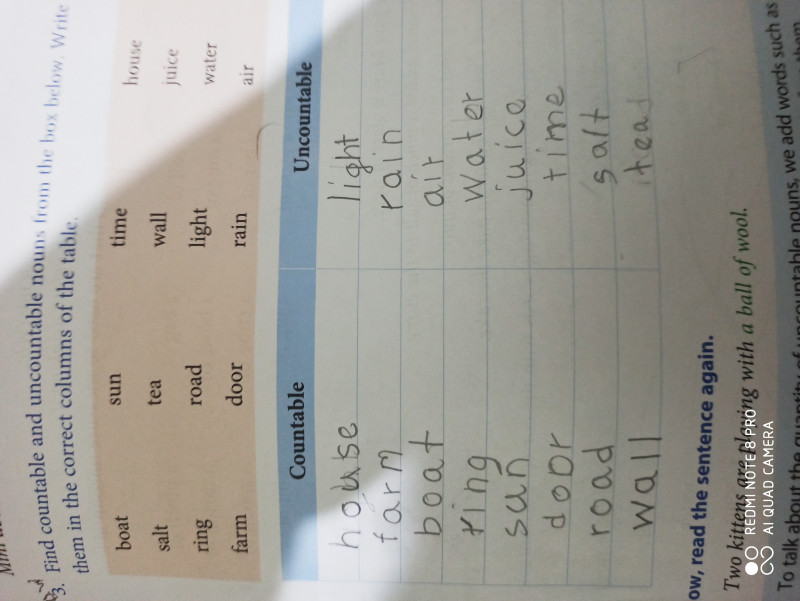 3. Find countable and uncountable nouns from the box below. Write
them in the correct columns of the table.
boat sun time house
salt tea wall juice
ring road light water
farm door rain air
Countable Uncountable
house light
farm rain
boat air
ring water
sun juice
door time
road salt
wall tea
ow, read the sentence again.
Two kittens are playing with a ball of wool.
To talk about the quantity of uncountable nouns, we add words such as
REDMI NOTE 8 PRO
AI QUAD CAMERA